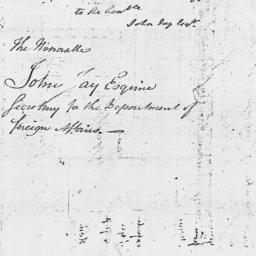 to the honble
John Jay Esqr.
The Honorable
John Jay Esquire
Secretary for the Department of
foreign Affairs.—